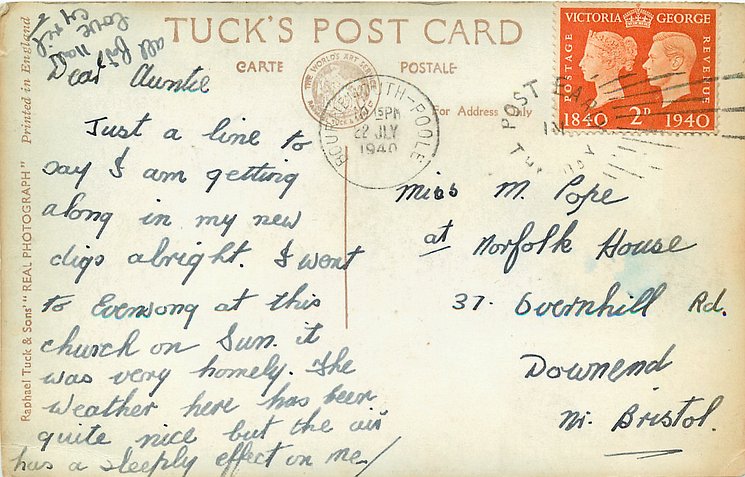 TUCK'S POST CARD
CARTE POSTALE
For Address Only
Dear Auntie
Just a line to
say I am getting
along in my new
digs alright. I went
to Evensong at this
church on Sun. it
was very homely. The
weather here has been
quite nice but the air
has a sleeply effect on me/
love
Miss M. Pope
at Norfolk House
37. Overnhill Rd.
Downend
Nr. Bristol.
BOURNEMOUTH-POOLE
15PM
22 JLY
1940
POST EAR
VICTORIA GEORGE
POSTAGE
REVENUE
1840 2D 1940
THE WORLD'S ART SERVICE
Raphael Tuck & Sons' "REAL PHOTOGRAPH" Printed in England